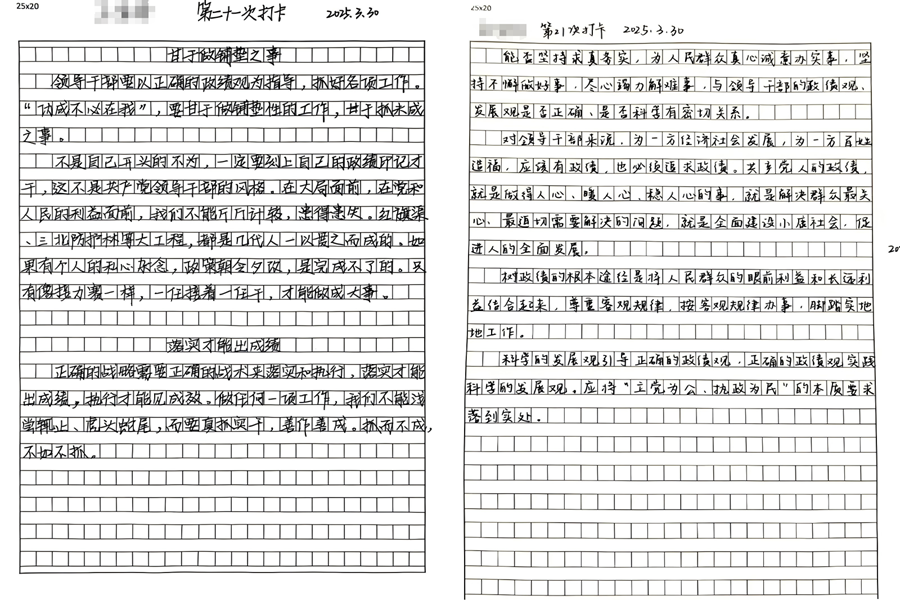 25x20
第二十一次打卡 2025.3.30
甘于做铺垫之事
领导干部要以正确的政绩观为指导，抓好各项工作。
“功成不必在我”，要甘于做铺垫性的工作，甘于抓未成
之事。
不是自己开头的不为，一定要刻上自己的政绩印记才
干，这不是共产党领导干部的风格。在大局面前，在党和
人民的利益面前，我们不能斤斤计较，患得患失。红旗渠
、三北防护林等大工程，都是几代人一以贯之而成的。如
果有个人的私心杂念，政策朝令夕改，是完成不了的。只
有像接力赛一样，一任接着一任干，才能做成大事。
落实才能出成绩
正确的战略需要正确的战术来落实和执行，落实才能
出成绩，执行才能见成效。做任何一项工作，我们不能浅
尝辄止、虎头蛇尾，而要真抓实干，善作善成。抓而不成，
不如不抓。
25x20
第21次打卡 2025.3.30
能否坚持求真务实，为人民群众真心诚意办实事，坚
持不懈做好事，尽心竭力解难事，与领导干部的政绩观、
发展观是否正确、是否科学有密切关系。
对领导干部来说，为一方经济社会发展，为一方百姓
造福，应该有政绩，也必须追求政绩。共产党人的政绩，
就是做得人心、暖人心、稳人心的事，就是解决群众最关
心、最迫切需要解决的问题，就是全面建设小康社会，促
进人的全面发展。
树政绩的根本途径是将人民群众的眼前利益和长远利
益结合起来，尊重客观规律，按客观规律办事，脚踏实地
地工作。
科学的发展观引导正确的政绩观，正确的政绩观实践
科学的发展观。应将“立党为公、执政为民”的本质要求
落到实处。
20